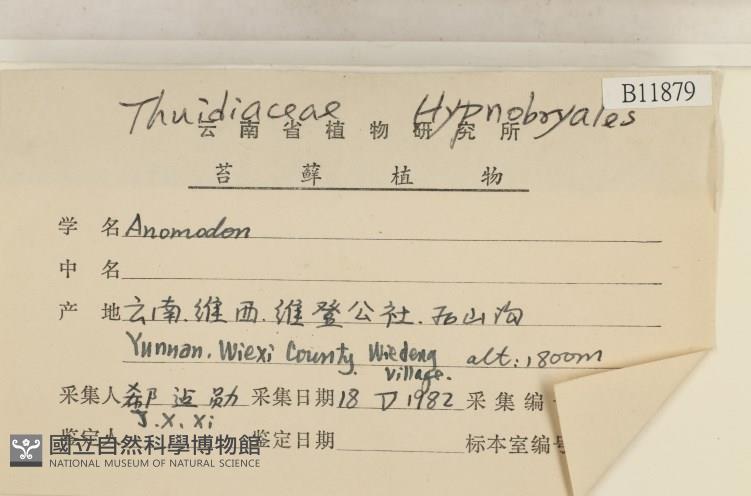 B11879
Thuidiaceae Hypnobryales
云南省植物研究所
苔藓植物
学名 Anomodon
中名
产地 云南.维西.维登公社.
Yunnan. Wiexi County Wiedeng village. alt: 1800m
采集人 郗 勋 采集日期 18 1982 采集编
J.X.Xi
鉴定人 鉴定日期 标本室编号
國立自然科學博物館
NATIONAL MUSEUM OF NATURAL SCIENCE